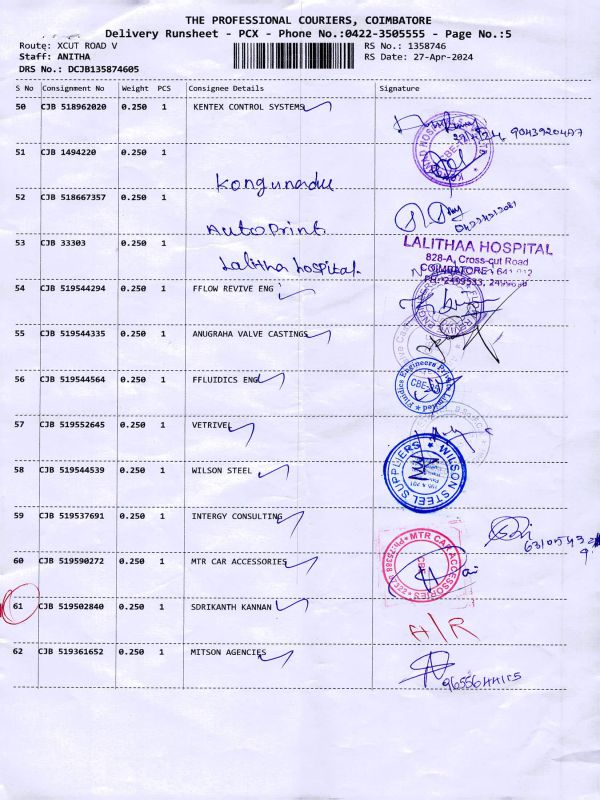 THE PROFESSIONAL COURIERS, COIMBATORE
Delivery Runsheet - PCX - Phone No.:0422-3505555 - Page No.:5
Route: XCUT ROAD V
RS No.: 1358746
Staff: ANITHA
RS Date: 27-Apr-2024
DRS No.: DCJB135874605
S No Consignment No Weight PCS Consignee Details Signature
50 CJB 518962020 0.250 1 KENTEX CONTROL SYSTEMS
9043920427
51 CJB 1494220 0.250 1
Kongunadu
52 CJB 518667357 0.250 1
AutoPrint.
53 CJB 33303 0.250 1
Lalitha hospital.
LALITHAA HOSPITAL
828-A, Cross-cut Road
COIMBATORE - 641 012
PH: 2499533,
54 CJB 519544294 0.250 1 FFLOW REVIVE ENG
55 CJB 519544335 0.250 1 ANUGRAHA VALVE CASTINGS
56 CJB 519544564 0.250 1 FFLUIDICS ENG
Fluidics Engineers Private Limited
CBE-35
57 CJB 519552645 0.250 1 VETRIVEL
58 CJB 519544539 0.250 1 WILSON STEEL
WILSON STEEL SUPPLIERS
59 CJB 519537691 0.250 1 INTERGY CONSULTING
60 CJB 519590272 0.250 1 MTR CAR ACCESSORIES
MTR CAR ACCESSORIES
61 CJB 519502840 0.250 1 SDRIKANTH KANNAN
A/R
62 CJB 519361652 0.250 1 MITSON AGENCIES